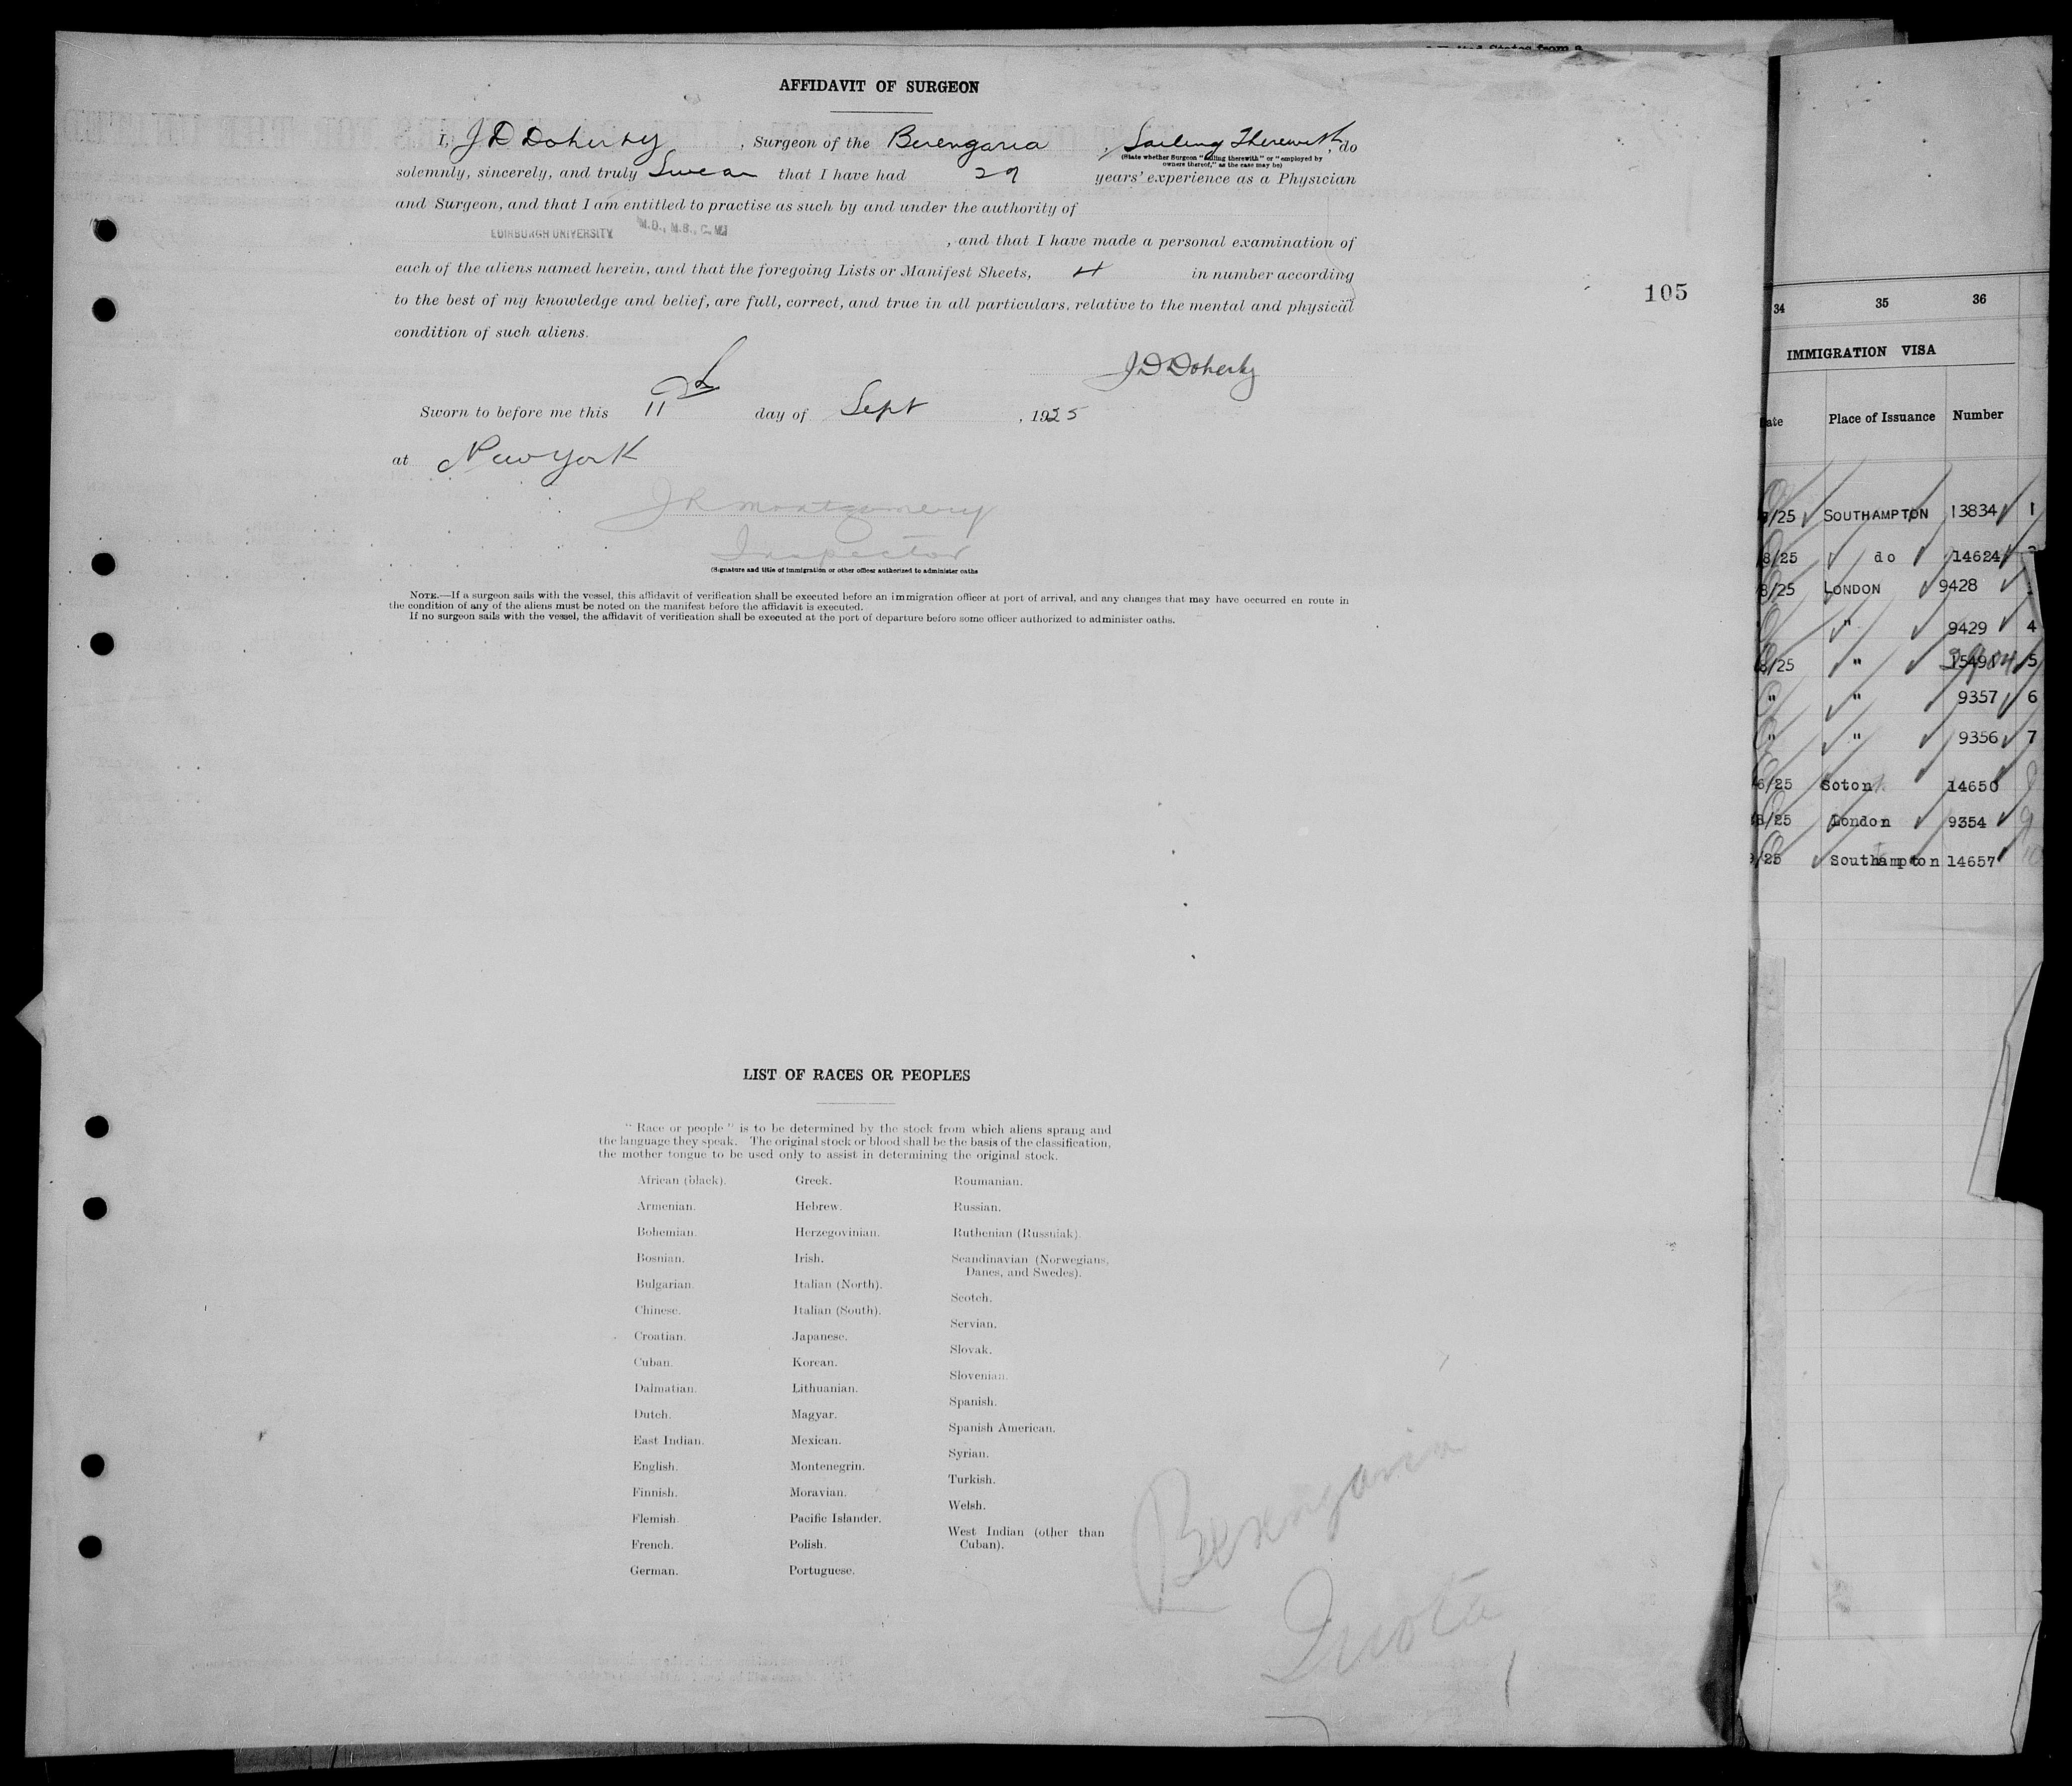 AFFIDAVIT OF SURGEON
I, J D Doherty, Surgeon of the Berengaria, Sailing Therewith, do
(State whether Surgeon "sailing therewith" or "employed by
owners thereof," as the case may be)
solemnly, sincerely, and truly Swear that I have had 29 years' experience as a Physician
and Surgeon, and that I am entitled to practise as such by and under the authority of
EDINBURGH UNIVERSITY M.D., M.B., C.M.
, and that I have made a personal examination of
each of the aliens named herein, and that the foregoing Lists or Manifest Sheets, 4 in number according
to the best of my knowledge and belief, are full, correct, and true in all particulars, relative to the mental and physical
condition of such aliens.
J D Doherty
Sworn to before me this 11 day of Sept, 1925
at New York
J R Montgomery
Inspector
(Signature and title of immigration or other officer authorized to administer oaths
NOTE.—If a surgeon sails with the vessel, this affidavit of verification shall be executed before an immigration officer at port of arrival, and any changes that may have occurred en route in
the condition of any of the aliens must be noted on the manifest before the affidavit is executed.
If no surgeon sails with the vessel, the affidavit of verification shall be executed at the port of departure before some officer authorized to administer oaths.
105
LIST OF RACES OR PEOPLES
"Race or people" is to be determined by the stock from which aliens sprang and
the language they speak. The original stock or blood shall be the basis of the classification,
the mother tongue to be used only to assist in determining the original stock.
African (black).
Armenian.
Bohemian.
Bosnian.
Bulgarian.
Chinese.
Croatian.
Cuban.
Dalmatian.
Dutch.
East Indian.
English.
Finnish.
Flemish.
French.
German.
Greek.
Hebrew.
Herzegovinian.
Irish.
Italian (North).
Italian (South).
Japanese.
Korean.
Lithuanian.
Magyar.
Mexican.
Montenegrin.
Moravian.
Pacific Islander.
Polish.
Portuguese.
Roumanian.
Russian.
Ruthenian (Russniak).
Scandinavian (Norwegians,
Danes, and Swedes).
Scotch.
Servian.
Slovak.
Slovenian.
Spanish.
Spanish American.
Syrian.
Turkish.
Welsh.
West Indian (other than
Cuban).
Berengaria
Quota
1
34 35 36
IMMIGRATION VISA
Date Place of Issuance Number
/25 SOUTHAMPTON 13834 1
8/25 do 14624
8/25 LONDON 9428
" 9429 4
8/25 " 5
" " 9357 6
" " 9356 7
6/25 Soton 14650
8/25 London 9354 9
/25 Southampton 14657 10